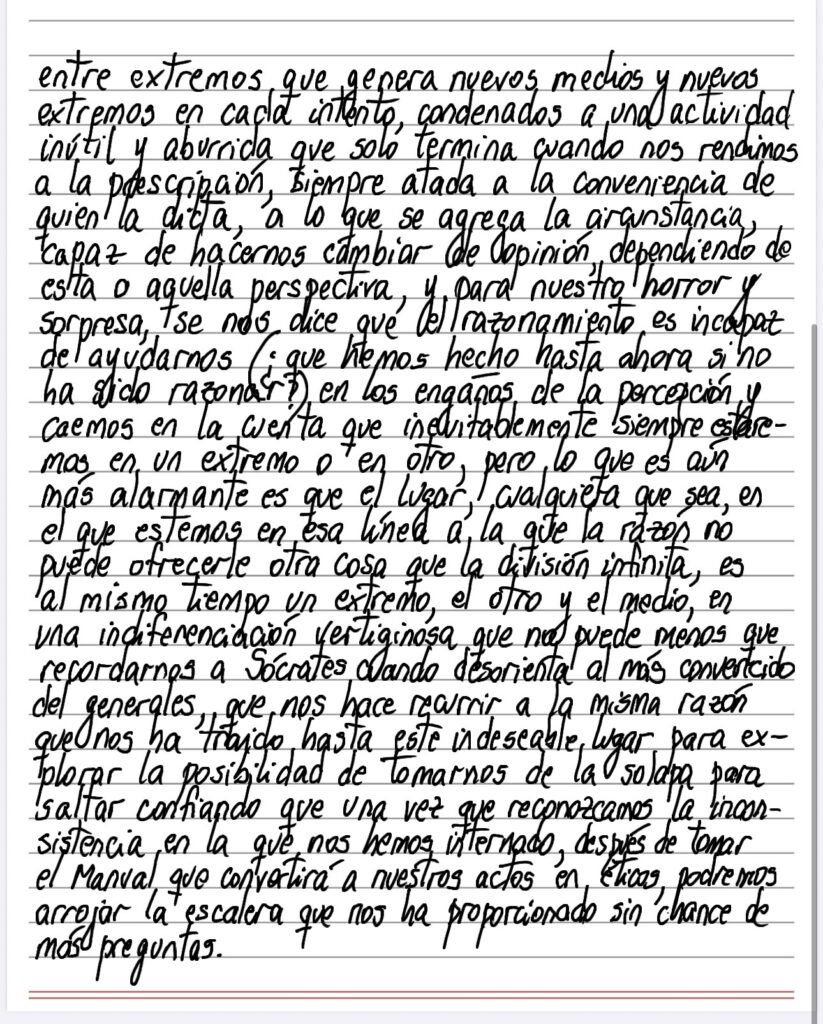 entre extremos que genera nuevos medios y nuevos
extremos en cada intento, condenados a una actividad
inútil y aburrida que solo termina cuando nos rendimos
a la prescripción, siempre atada a la conveniencia de
quien la dicta, a lo que se agrega la circunstancia,
capaz de hacernos cambiar de opinión, dependiendo de
esta o aquella perspectiva, y, para nuestro horror y
sorpresa, se nos dice que el razonamiento es incapaz
de ayudarnos (¿que hemos hecho hasta ahora si no
ha sido razonar?) en los engaños de la percepción y
caemos en la cuenta que inevitablemente siempre estare-
mos en un extremo o en otro, pero lo que es aún
más alarmante es que el lugar, cualquiera que sea, en
el que estemos en esa línea a la que la razón no
puede ofrecerle otra cosa que la división infinita, es
al mismo tiempo un extremo, el otro y el medio, en
una indiferenciación vertiginosa que no puede menos que
recordarnos a Sócrates cuando desorienta al más convencido
del generales, que nos hace recurrir a la misma razón
que nos ha traído hasta este indeseable lugar para ex-
plorar la posibilidad de tomarnos de la solapa para
saltar confiando que una vez que reconozcamos la incon-
sistencia en la que nos hemos internado, después de tomar
el Manual que convertirá a nuestros actos en éticos, podremos
arrojar la escalera que nos ha proporcionado sin chance de
más preguntas.